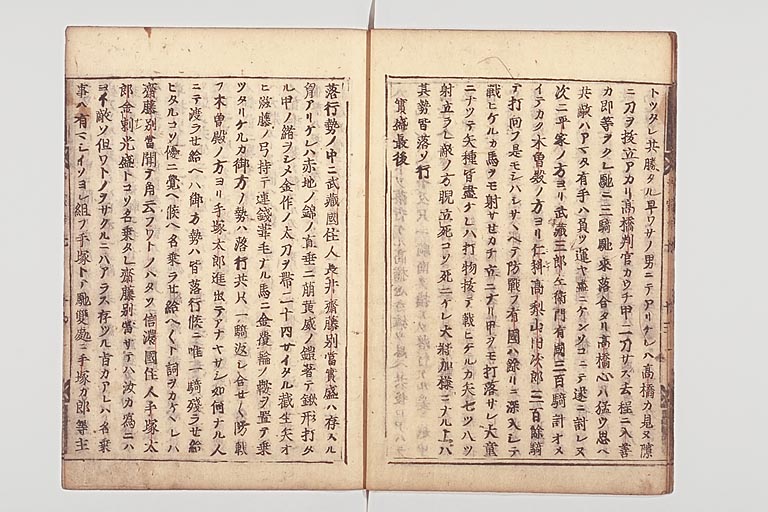 トツタレ共勝タル早ワサノ男ニテアリケレハ高橋カ見ヌ隙
ニ刀ヲ抜立アカリ高橋判官カウチ甲二刀サス去程ニ入善
カ郎等ヲクレ馳ニ三騎馳来落合タリ高橋心ハ猛ク思ヘ
共敵ハアマタ有手ハ負ツ運ヤ盡ニケンソコニテ遂ニ討レヌ
次ニ平家ノ方ヨリ武蔵三郎左衛門有國三百騎計オメ
イテカク木曽殿ノ方ヨリ仁科高梨山田次郎三百餘騎
テ打向フ是モシハレサヽヘテ防戦フ有國ハ餘リニ深入シテ
戦ヒケルカ馬ヲモ射サセカチ立ニナリ甲ヲモ打落サレ大童
ニナツテ矢種皆盡ケレハ打物抜テ戦ヒケルカ矢七ツハツ
射立ラレ敵ノ方睨立死コソ死ニケレ大将加様ニナル上ハ
其勢皆落ソ行
実盛最後
落行勢ノ中ニ武蔵國住人長井齋藤別當實盛ハ存スル
旨アリケレハ赤地ノ錦ノ直垂ニ萌黄威ノ鎧著テ鍬形打タ
ル甲ノ緒ヲシメ金作ノ太刀ヲ帯二十四サイタル截生矢オ
ヒ滋藤ノ弓持テ連銭葦毛ナル馬ニ金覆輪ノ鞍ヲ置テ乗
ツタリケルカ御方ノ勢ハ落行共只一騎返シ合セ〱防戦
フ木曽殿ノ方ヨリ手塚太郎進出テアナヤサシ如何ナル人
ニテ渡ラセ給ヘハ御方ノ勢ハ皆落行候ニ唯一騎殘ラセ給
ヒタルコソ優ニ覚ヘ候ヘ名乗ラセ給ヘ〱ト詞ヲカケヽレハ
齋藤別當聞テ角云フワトノハタソ信濃國住人手塚太
郎金刺光盛トコソ名乗タレ齋藤別當サテハ汝カ為ニハ
ヨイ敵ソ但ワトノヲサクルニハアラス存ツル旨カアレハ名乗
事ハ有マシイソヨレ組フ手塚トテ馳雙處ニ手塚カ郎等主